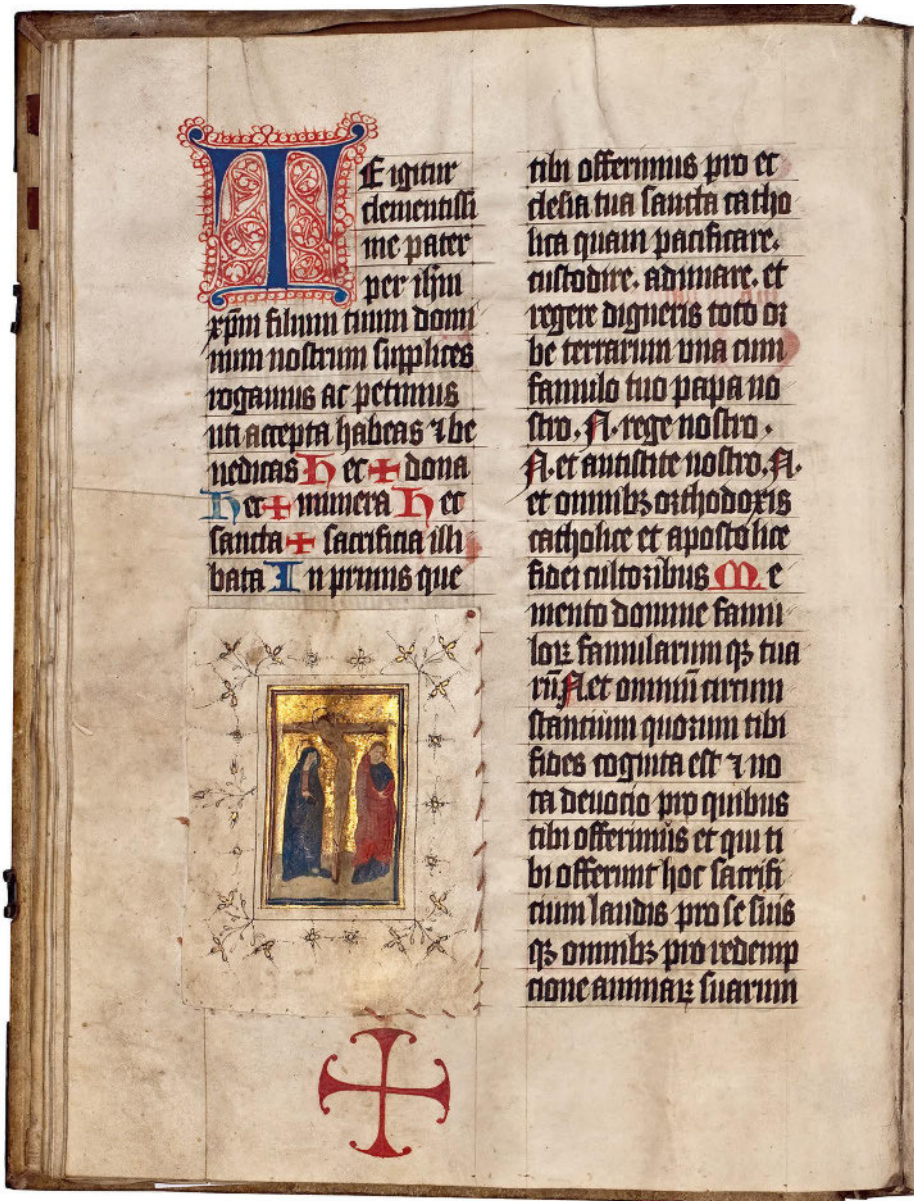 TE igitur
clementissi
me pater
per ihm̄
xp̄m filium tuum domi
num nostrum supplices
rogamus ac petimus
uti accepta habeas ⁊ be
nedicas Hec + dona
Hec + munera Hec
sancta + sacrificia illi
bata In primis que
tibi offerimus pro ec
clesia tua sancta catho
lica quam pacificare.
custodire. adunare. et
regere digneris toto or
be terrarum una cum
famulo tuo papa no
stro. N. rege nostro.
N. et antistite nostro. N.
et omnibꝫ orthodoxis
catholice et apostolice
fidei cultoribus Me
mento domine famu
loꝝ famularum qꝫ tua
rū. N. et omniū circum
stancium quorum tibi
fides cognita est ⁊ no
ta deuocio pro quibus
tibi offerimus et qui ti
bi offerunt hoc sacrifi
cium laudis pro se suis
qꝫ omnibꝫ pro redemp
cione animaꝝ suarum